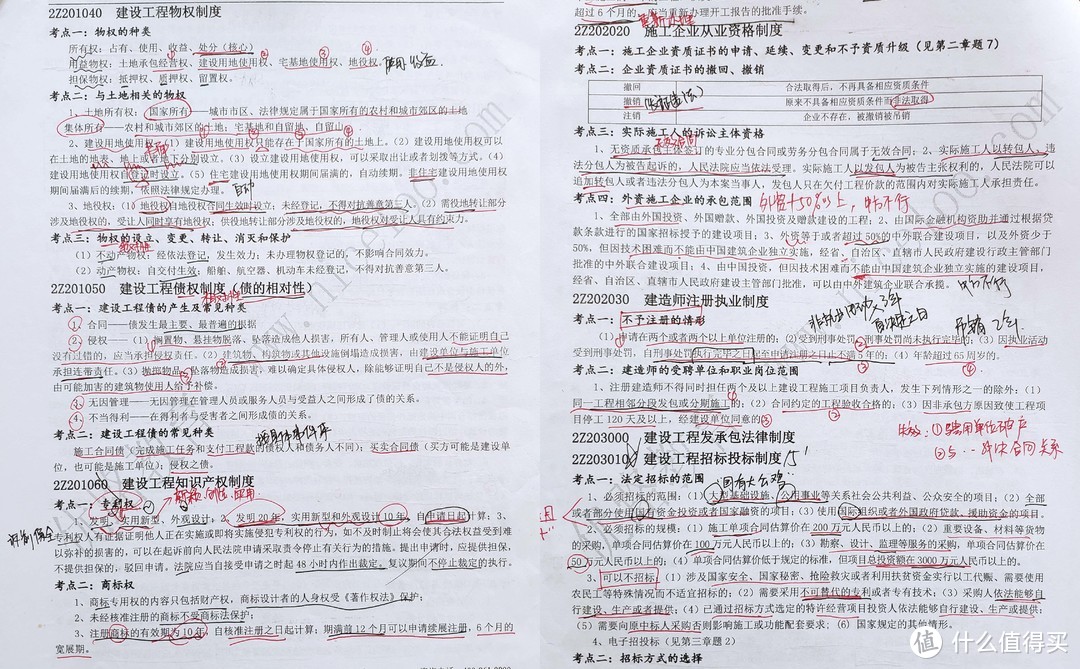 2Z201040 建设工程物权制度
考点一：物权的种类
所有权：占有、使用、收益、处分（核心）
用益物权：土地承包经营权、建设用地使用权、宅基地使用权、地役权。
担保物权：抵押权、质押权、留置权。
考点二：与土地相关的物权
1、土地所有权：国家所有——城市市区、法律规定属于国家所有的农村和城市郊区的土地
集体所有——农村和城市郊区的土地；宅基地和自留地、自留山。
2、建设用地使用权：（1）建设用地使用权只能存在于国家所有的土地上。（2）建设用地使用权可以
在土地的地表、地上或者地下分别设立。（3）设立建设用地使用权，可以采取出让或者划拨等方式。（4）
建设用地使用权自登记时设立。（5）住宅建设用地使用权期间届满的，自动续期。非住宅建设用地使用权
期间届满后的续期，依照法律规定办理。
自动
3、地役权：（1）地役权自地役权合同生效时设立；未经登记，不得对抗善意第三人。（2）需役地转让部分
涉及地役权的，受让人同时享有地役权；供役地转让部分涉及地役权的，地役权对受让人具有约束力。
考点三：物权的设立、变更、转让、消灭和保护
（1）不动产物权：经依法登记，发生效力；未办理物权登记的，不影响合同效力。
（2）动产物权：自交付生效；船舶、航空器、机动车未经登记，不得对抗善意第三人。
2Z201050 建设工程债权制度（债的相对性）
考点一：建设工程债的产生及常见种类
1、合同——债发生最主要、最普遍的根据
2、侵权——（1）搁置物、悬挂物脱落、坠落造成他人损害，所有人、管理人或使用人不能证明自己
没有过错的，应当承担侵权责任。（2）建筑物、构筑物或其他设施倒塌造成损害，由建设单位与施工单位
承担连带责任。（3）抛掷物品、坠落物造成损害，难以确定具体侵权人，除能够证明自己不是侵权人的外，
由可能加害的建筑物使用人给予补偿。
3、无因管理——无因管理在管理人员或服务人员与受益人之间形成了债的关系。
4、不当得利——在得利者与受害者之间形成债的关系。
考点二：建设工程债的常见种类
施工合同债（完成施工任务和支付工程款的债权人和债务人不同）；买卖合同债（买方可能是建设单
位，也可能是施工单位）；侵权之债。
2Z201060 建设工程知识产权制度
考点一：专利权
1、发明，实用新型，外观设计；2、发明20年，实用新型和外观设计10年，自申请日起计算；3、
专利权人有证据证明他人正在实施或即将实施侵犯专利权的行为，如不及时制止将会使其合法权益受到难
以弥补的损害的，可以在起诉前向人民法院申请采取责令停止有关行为的措施。提出申请时，应提供担保，
不提供担保的，驳回申请。法院应当自接受申请之时起48小时内作出裁定。复议期间不停止裁定的执行。
考点二：商标权
1、商标专用权的内容只包括财产权，商标设计者的人身权受《著作权法》保护；
2、未经核准注册的商标不受商标法保护；
3、注册商标的有效期为10年，自核准注册之日起计算；期满前12个月可以申请续展注册，6个月的
宽展期。
超过6个月的，应当重新办理开工报告的批准手续。
2Z202020 施工企业从业资格制度
考点一：施工企业资质证书的申请、延续、变更和不予资质升级（见第二章题7）
考点二：企业资质证书的撤回、撤销
撤回 合法取得后，不再具备相应资质条件
撤销 原来不具备相应资质条件而非法取得
注销 企业不存在，被撤销被吊销
考点三：实际施工人的诉讼主体资格
1、无资质承包主体签订的专业分包合同或劳务分包合同属于无效合同；2、实际施工人以转包人、违
法分包人为被告起诉的，人民法院应当依法受理。实际施工人以发包人为被告主张权利的，人民法院可以
追加转包人或者违法分包人为本案当事人，发包人只在欠付工程价款的范围内对实际施工人承担责任。
考点四：外资施工企业的承包范围
1、全部由外国投资、外国赠款、外国投资及赠款建设的工程；2、由国际金融机构资助并通过根据贷
款条款进行的国家招标授予的建设项目；3、外资等于或者超过50%的中外联合建设项目，以及外资少于
50%，但因技术困难而不能由中国建筑企业独立实施，经省、自治区、直辖市人民政府建设行政主管部门
批准的中外联合建设项目；4、由中国投资，但因技术困难而不能由中国建筑企业独立实施的建设项目，
经省、自治区、直辖市人民政府建设主管部门批准，可以由中外建筑企业联合承揽。
2Z202030 建造师注册执业制度
考点一：不予注册的情形
（1）申请在两个或者两个以上单位注册的；（2）受到刑事处罚，刑事处罚尚未执行完毕的；（3）因执业活动
受到刑事处罚，自刑事处罚执行完毕之日起至申请注册之日止不满5年的；（4）年龄超过65周岁的。
考点二：建造师的受聘单位和职业岗位范围
1、注册建造师不得同时担任两个及以上建设工程施工项目负责人，发生下列情形之一的除外：（1）
同一工程相邻分段发包或分期施工的；（2）合同约定的工程验收合格的；（3）因非承包方原因致使工程项
目停工120天及以上，经建设单位同意的。
2Z203000 建设工程发承包法律制度
2Z203010 建设工程招标投标制度
考点一：法定招标的范围
1、必须招标的范围：（1）大型基础设施、公用事业等关系社会公共利益、公众安全的项目；（2）全部
或者部分使用国有资金投资或者国家融资的项目；（3）使用国际组织或者外国政府贷款、援助资金的项目。
2、必须招标的规模：（1）施工单项合同估算价在200万元人民币以上的；（2）重要设备、材料等货物
的采购，单项合同估算价在100万元人民币以上的；（3）勘察、设计、监理等服务的采购，单项合同估算价在
50万元人民币以上的；（4）单项合同估算价低于规定的标准，但项目总投资额在3000万元人民币以上的。
3、可以不招标：（1）涉及国家安全、国家秘密、抢险救灾或者利用扶贫资金实行以工代赈、需要使用
农民工等特殊情况而不适宜招标的；（2）需要采用不可替代的专利或者专有技术；（3）采购人依法能够自
行建设、生产或者提供；（4）已通过招标方式选定的特许经营项目投资人依法能够自行建设、生产或提供；
（5）需要向原中标人采购否则影响施工或功能配套要求；（6）国家规定的其他情形。
4、电子招投标（见第三章题2）
考点二：招标方式的选择
值 什么值得买